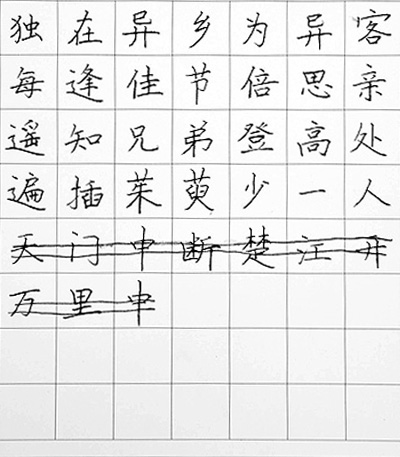 独在异乡为异客
每逢佳节倍思亲
遥知兄弟登高处
遍插茱萸少一人
天门中断楚江开
万里中